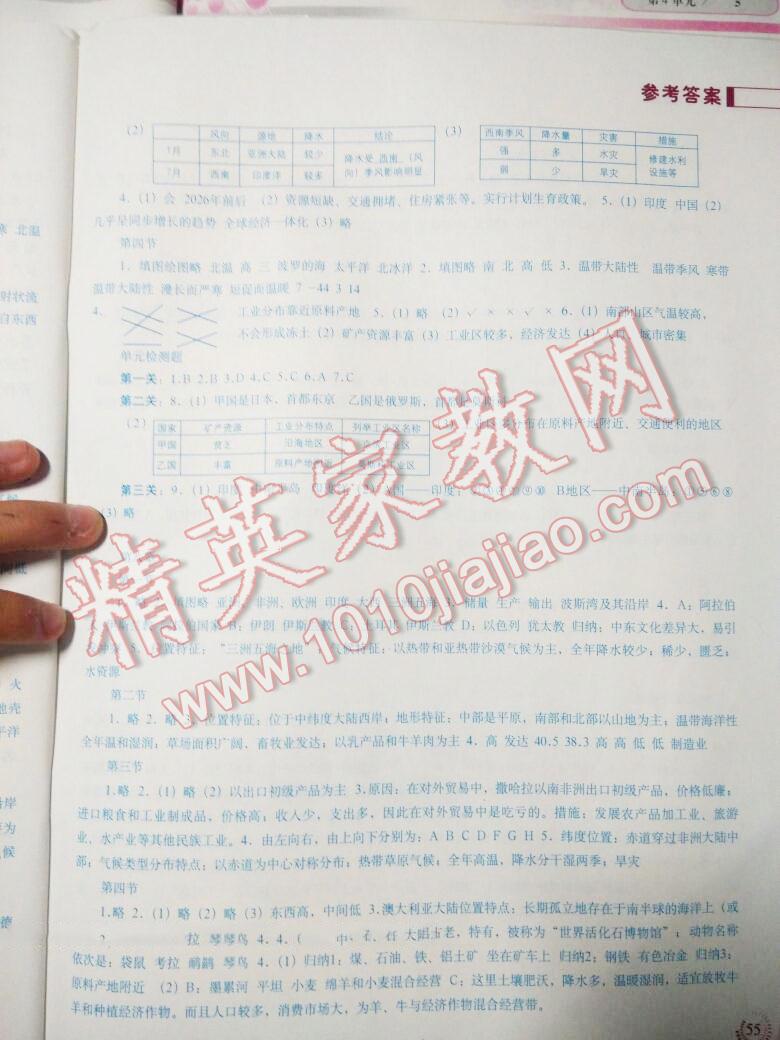 第4单元
5
参考答案
(2)
风向 源地 降水 结论
1月 东北 亚洲大陆 较少 降水受 西南 (风向) 季风影响明显
7月 西南 印度洋 较多
(3)
西南季风 降水量 灾害 措施
强 多 水灾 修建水利设施等
弱 少 旱灾
4. (1) 会 2026年前后 (2) 资源短缺、交通拥堵、住房紧张等。实行计划生育政策。 5. (1) 印度 中国 (2)
几乎呈同步增长的趋势 全球经济一体化 (3) 略
第四节
1. 填图绘图略 北温 高 三 波罗的海 太平洋 北冰洋 2. 填图略 南 北 高 低 3. 温带大陆性 温带季风 寒带
温带大陆性 漫长而严寒 短促而温暖 7 -44 3 14
4. 工业分布靠近原料产地 5. (1) 略 (2) √ × × √ × 6. (1) 南部山区气温较高,
不会形成冻土 (2) 矿产资源丰富 (3) 工业区较多,经济发达 (4) 人口 城市密集
单元检测题
第一关: 1.B 2.B 3.D 4.C 5.C 6.A 7.C
第二关: 8. (1) 甲国是日本、首都东京 乙国是俄罗斯、首都
(2)
国家 矿产资源 工业分布特点 列举工业区名称
甲国 贫乏 沿海地区 工业区
乙国 丰富 原料产地附近 工业区
(3) 工业区多分布在原料产地附近、交通便利的地区
第三关: 9. (1) 印度 (2) 国——印度: ⑨⑩ B地区——中南半岛: ⑥⑧
(3) 略
填图略 亚洲、非洲、欧洲 印度 大西 三洲五海 3. 储量 生产 输出 波斯湾及其沿岸 4. A: 阿拉伯
国家 B: 伊朗 伊斯兰教 C: 土耳其 伊斯兰教 D: 以色列 犹太教 归纳: 中东文化差异大,易引
5. 位置特征: “三洲五海之地” 气候特征: 以热带和亚热带沙漠气候为主,全年降水较少; 稀少,匮乏;
水资源
第二节
1. 略 2. 略 3. 位置特征: 位于中纬度大陆西岸; 地形特征: 中部是平原,南部和北部以山地为主; 温带海洋性
全年温和湿润; 草场面积广阔、畜牧业发达; 以乳产品和牛羊肉为主 4. 高 发达 40.5 38.3 高 高 低 低 制造业
第三节
1.略 2. (1) 略 (2) 以出口初级产品为主 3.原因: 在对外贸易中,撒哈拉以南非洲出口初级产品,价格低廉;
进口粮食和工业制成品,价格高; 收入少,支出多,因此在对外贸易中是吃亏的。措施: 发展农产品加工业、旅游
业、水产业等其他民族工业。4. 由左向右,由上向下分别为: A B C D F G H 5. 纬度位置: 赤道穿过非洲大陆中
部; 气候类型分布特点: 以赤道为中心对称分布; 热带草原气候; 全年高温,降水分干湿两季; 旱灾
第四节
1.略 2. (1) 略 (2) 略 (3) 东西高,中间低 3.澳大利亚大陆位置特点: 长期孤立地存在于南半球的海洋上 (或
拉 琴琴鸟 4. 特有,被称为“世界活化石博物馆”; 动物名称
依次是: 袋鼠 考拉 鸸鹋 琴鸟 4. (1) 归纳1: 煤、石油、铁、铝土矿 坐在矿车上 归纳2: 钢铁 有色冶金 归纳3:
原料产地附近 (2) B: 墨累河 平坦 小麦 绵羊和小麦混合经营 C: 这里土壤肥沃,降水多,温暖湿润,适宜放牧牛
羊和种植经济作物。而且人口较多,消费市场大,为羊、牛与经济作物混合经营带。
55
精英家教网
www.1010jiajiao.com
火
平洋
气候
北温
自东西